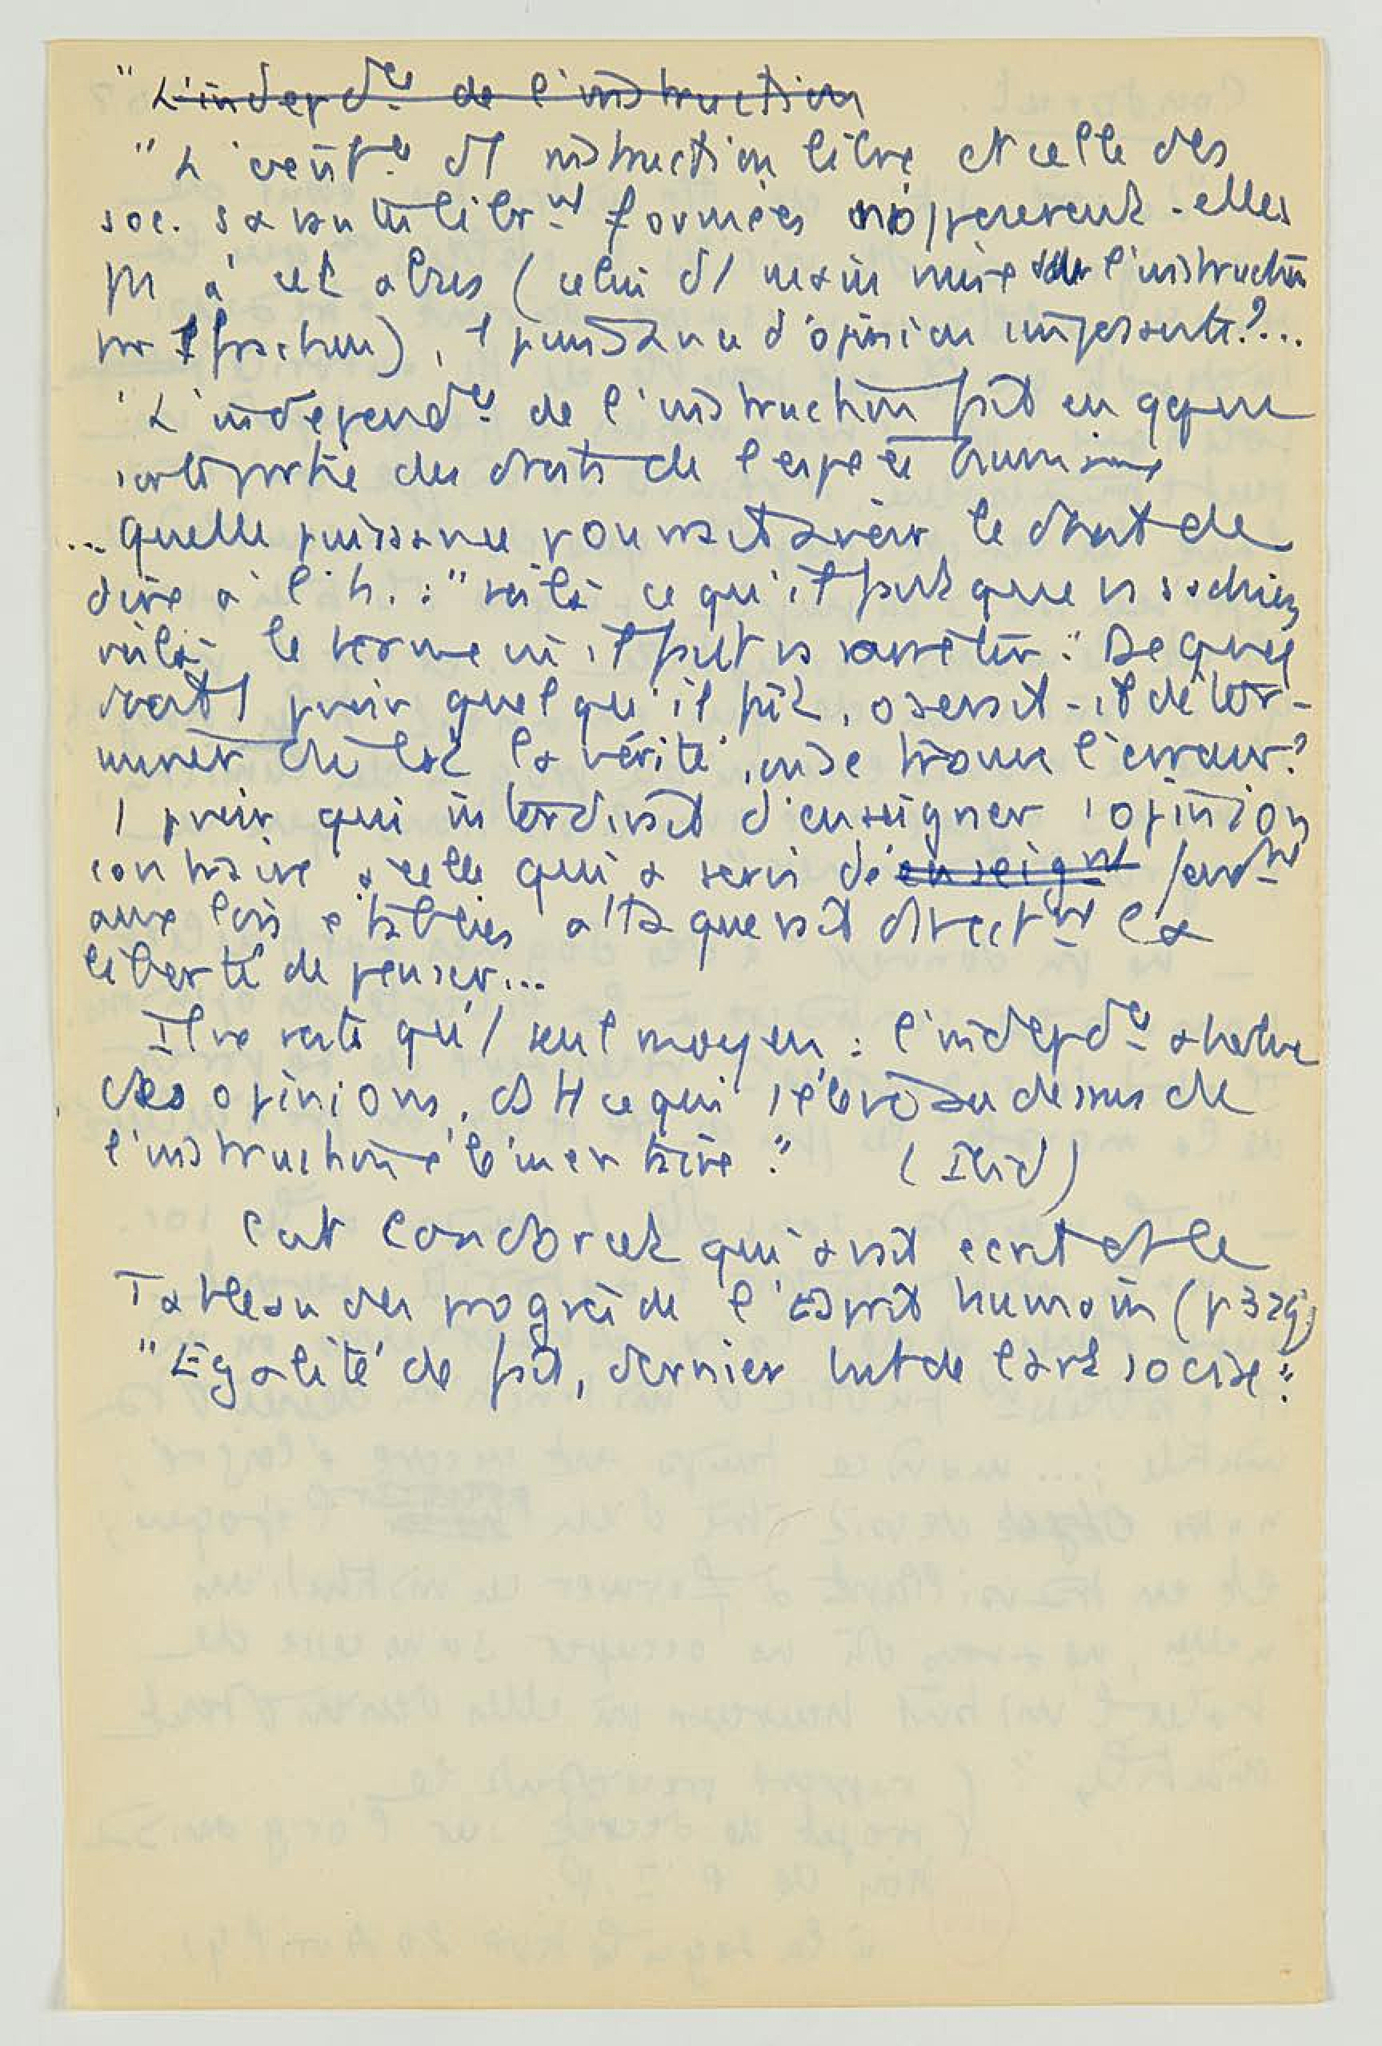 "L'indepdce de l'instruction
"L'exist.ce d'1 instruction libre et celle des
soc. savantes libr.nt formées n'opposeront-elles
pas à cet abus (celui d'1 main mise sur l'instruction
par 1 faction), 1 puissance d'opinion imposante?...
"L'independce de l'instruction fait en qque
sorte partie des droits de l'espèce humaine
... quelle puissance pourrait avoir le droit de
dire à l'h. : "voilà ce qu'il faut que vs sachiez
voilà le terme où il faut vs arrêter." De quel
droit 1 pvoir quel qu'il fût, oserait-il déter-
miner où est la vérité, où se trouve l'erreur?
1 pvoir qui interdirait d'enseigner 1 opinion
contraire à celle qui a servi de enseignt fondt
aux lois établies attaquerait directnt la
liberté de penser...
Il ne reste qu'1 seul moyen : l'indepdce absolue
des opinions, ds tt ce qui s'élève au dessus de
l'instruction élémentaire." (Ibid)
C'est Condorcet qui avait écrit ds le
Tableau des progrès de l'esprit humain (p 329)
"Egalité de fait, dernier but de l'art social":